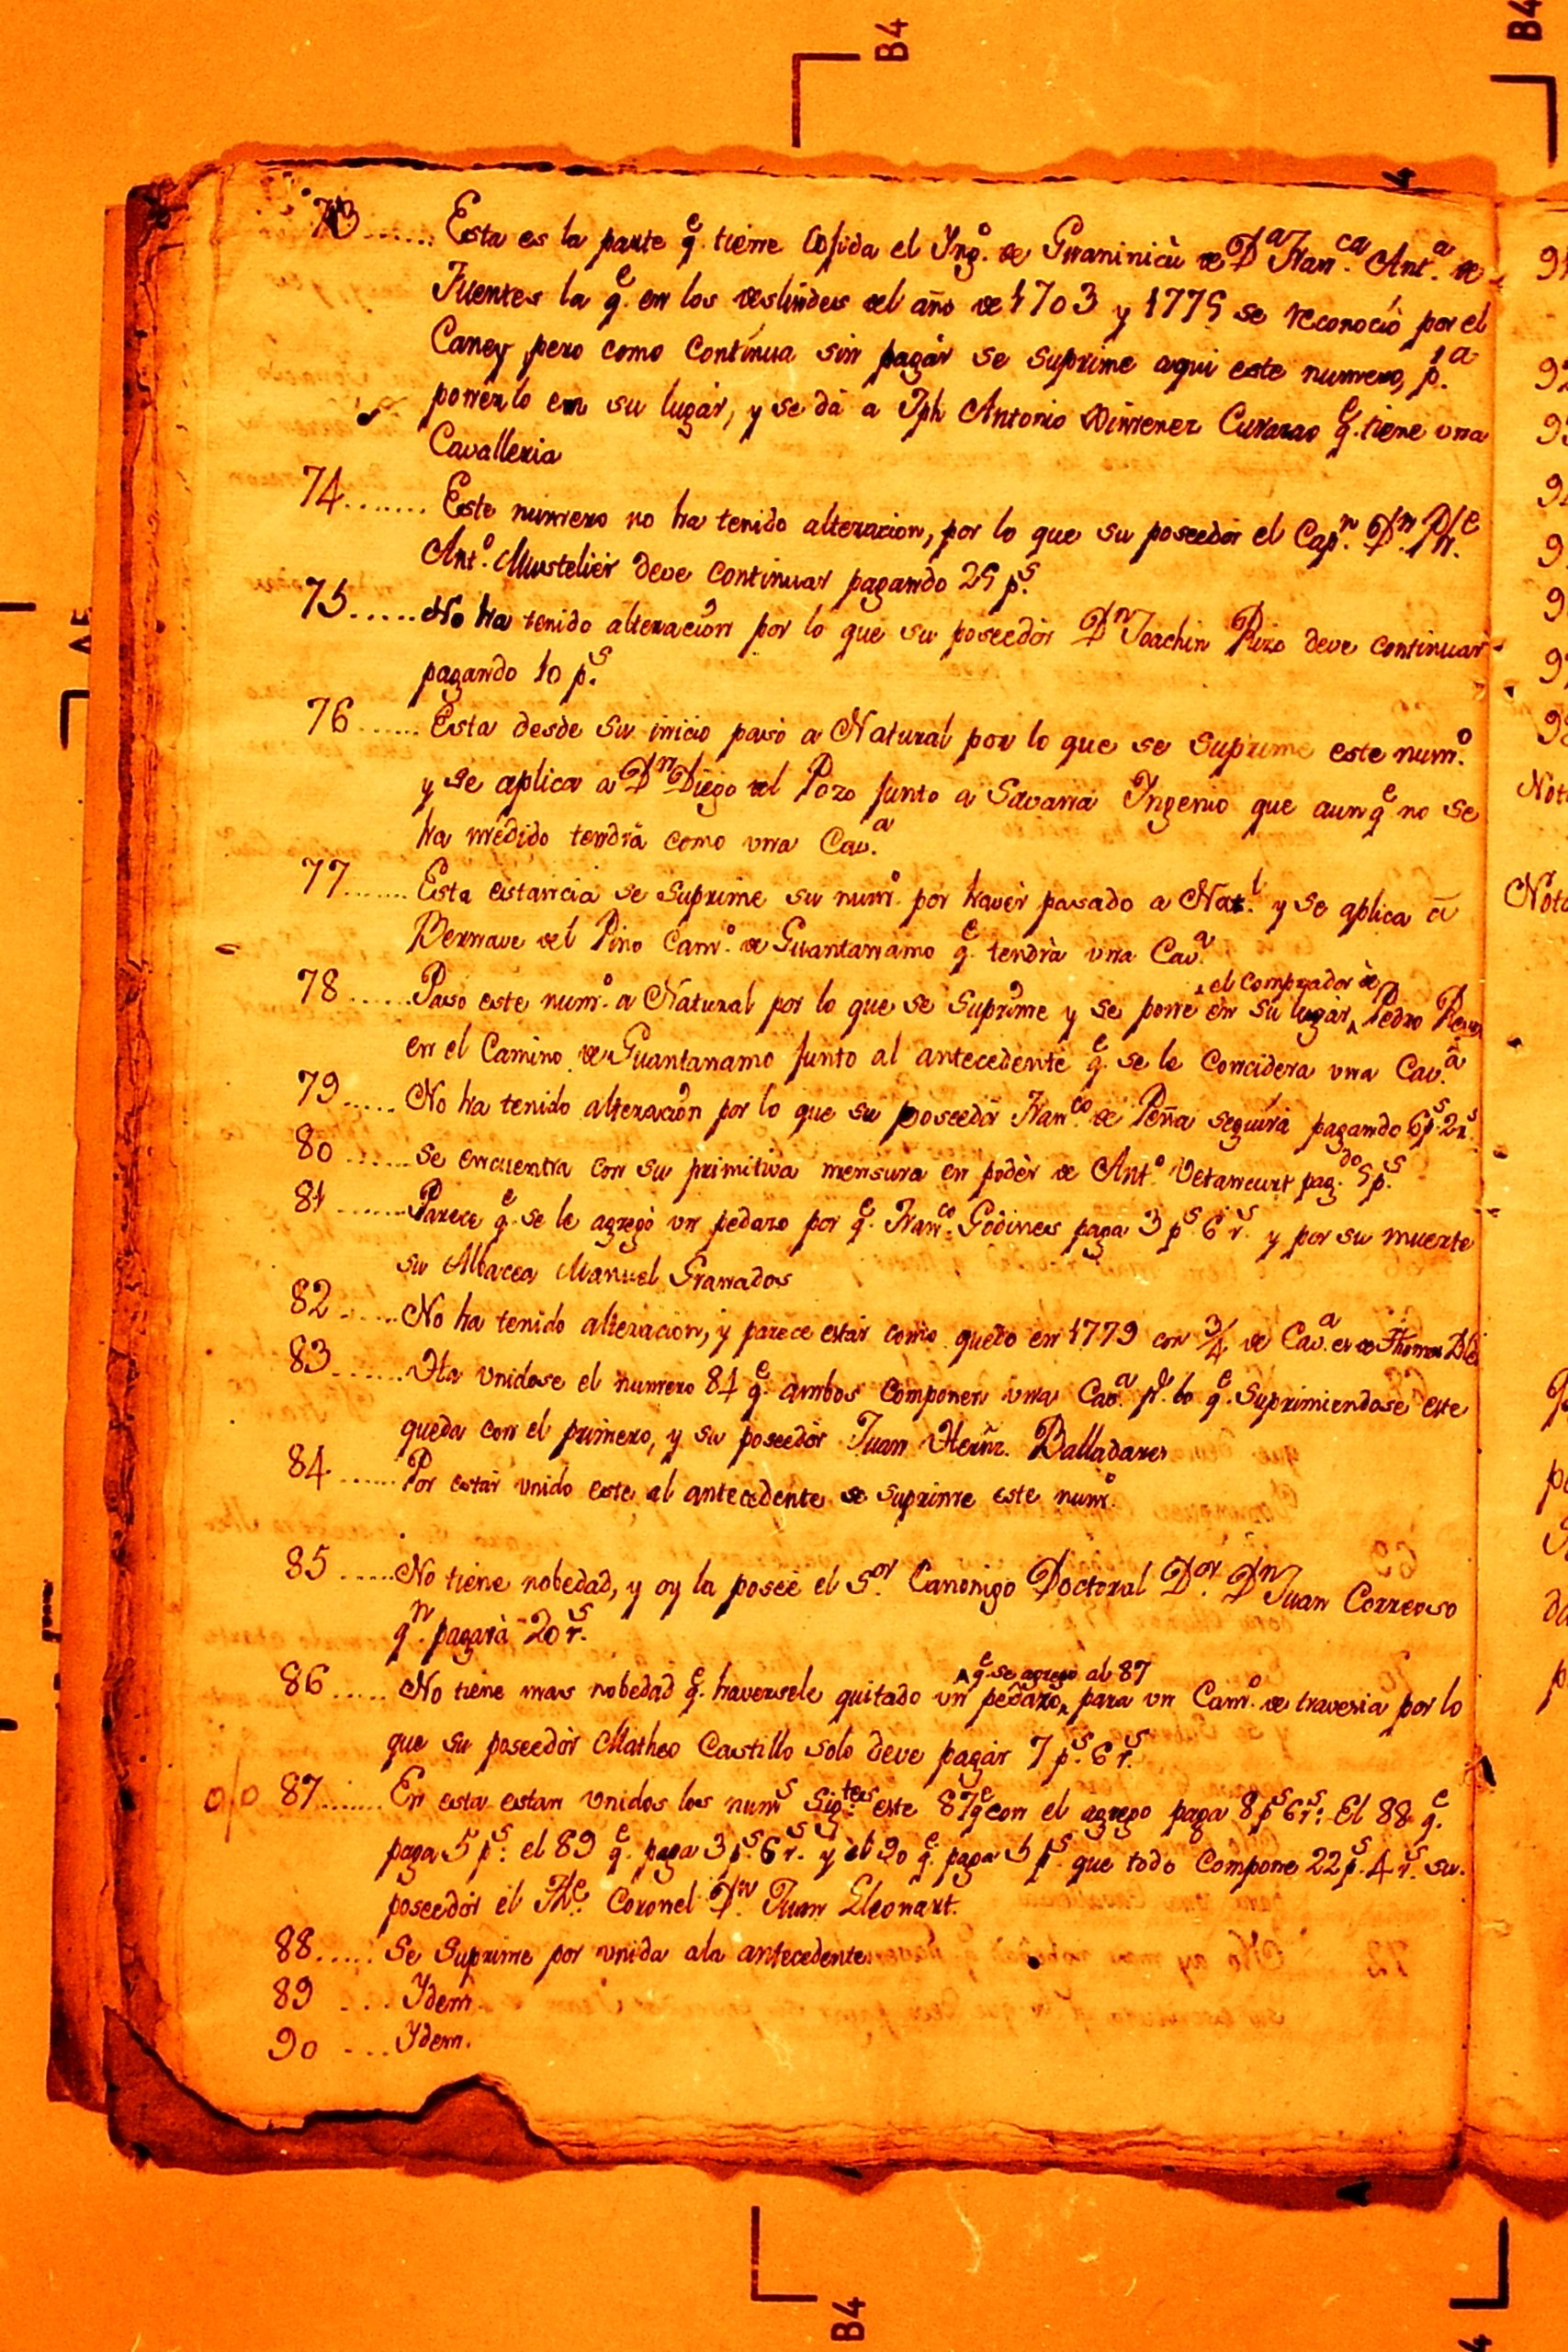 B4
B4
73...... Esta es la parte q.e tiene cojida el Yng.o de Guaninicù de D.a Fran.ca Ant.a de
Fuentes la q.e en los deslindes del año de 1703 y 1775 se reconociò por el
Caney, pero como continua sin pagàr se suprime aqui este numero, p.a
ponerlo en su lugàr, y se dà a Jph Antonio Ximenez Curazao q.e tiene una
Cavalleria
74....... Este numero no ha tenido alteracion, por lo que su poseedòr el Cap.n D.n
Ant.o Mustelièr deve continuar pagando 25 p.s
75..... No ha tenido alteraciòn por lo que su poseedòr D.n Joachin Rizo deve continuar
pagando 10 p.s
76...... Esta desde su inicio pasò a Natural por lo que se suprime este num.o
y se aplica a D.n Diego del Pozo junto a Savana Ingenio que aunq.e no se
ha medido tendrà como una Cav.a
77....... Esta estancia se suprime su num.o por havèr pasado a Nat.l y se aplica à
Bernave del Pino Cam.o de Guantanamo q.e tendrà una Cav.a
78...... Paso este num.o a Natural por lo que se suprime y se pone en su lugàr el Comprador de Pedro
en el Camino de Guantanamo junto al antecedente q.e se le concidera una Cav.a
79..... No ha tenido alteraciòn por lo que su poseedòr Fran.co de Peña seguirà pagando 6 p.s 2 r.s
80 ...... se encuentra con su primitiva mensura en podèr de Ant.o Vetancurt pag.do 5 p.s
81 ...... Parece q.e se le agregò un pedazo por q.e Fran.co Godines paga 3 p.s 6 r.s y por su muerte
su Albacea Manuel Granados
82 ..... No ha tenido alteracion, y parece estàr como quedo en 1779 con 3/4 de Cav.a es de Thomas
83...... Ha unidose el numero 84 q.e ambos componen una Cav.a p.r lo q.e suprimiendose este
queda con el primero, y su poseedòr Juan Hernz. Balladares
84...... Por estàr unido este al antecedente se suprime este num.o
85 ..... No tiene nobedad, y oy la posee el S.or Canonigo Doctoral D.or D.n Juan Correoso
q.n pagarà 20 r.s
86 ..... No tiene mas nobedad q.e haversele quitado un pedazo q.e se agregò al 87 para un Cam.o de travesia por lo
que su poseedòr Matheo Castillo solo deve pagàr 7 p.s 6 r.s
o/o 87...... En esta estan unidos los num.s sig.tes este 87 q.e con el agrego paga 8 p.s 6 r.s: El 88 q.e
paga 5 p.s: el 89 q.e paga 3 p.s 6 r.s y el 90 q.e paga 5 p.s que todo compone 22 p.s 4 r.s su
poseedòr el Th.e Coronel D.n Juan Lleonart.
88..... Se suprime por unida ala antecedente.
89 .... Ydem.
90 .... Ydem.
Nota
Nota
B4